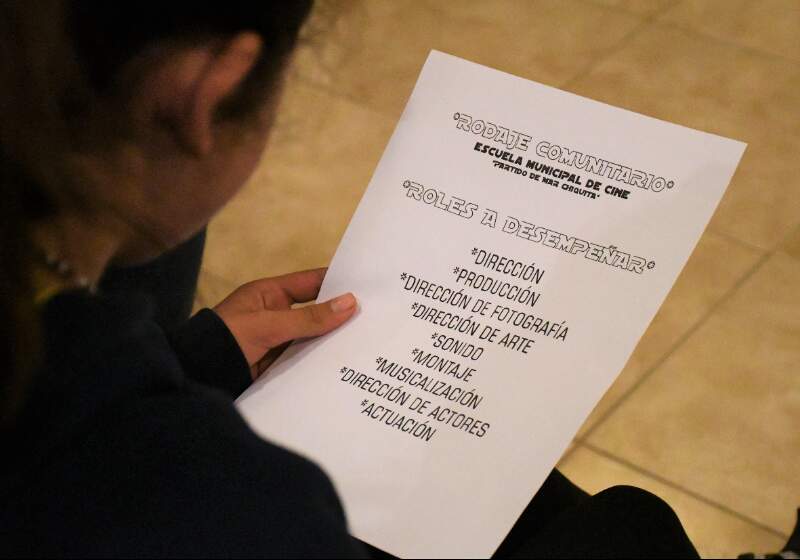 "RODAJE COMUNITARIO"
ESCUELA MUNICIPAL DE CINE
"PARTIDO DE MAR CHIQUITA"
"ROLES A DESEMPEÑAR"
*DIRECCIÓN
*PRODUCCIÓN
*DIRECCIÓN DE FOTOGRAFÍA
*DIRECCIÓN DE ARTE
*SONIDO
*MONTAJE
*MUSICALIZACIÓN
*DIRECCIÓN DE ACTORES
*ACTUACIÓN